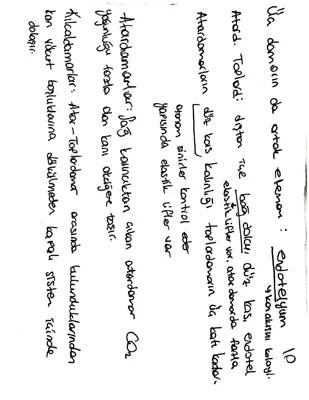 10
Üç damarın da ortak elemanı : endotelyum
→ yarıçapını kolayl.
Atard. Toplard: dıştan içe bağ doku, düz kas, endotel
elastik lifler var. atar damarda fazla
Atardamarların düz kas kalınlığı toplardamarın üç katı kadar.
otonom sinirler kontrol eder
yapısında elastik lifler var
Atardamarlar: Sağ karıncıktan çıkan atardamar CO2
yoğunluğu fazla olan kanı akciğere taşır.
Kılcaldamarlar: Atar-Toplardamar arasında bulunduklarından
kan vücut boşluklarına dökülmeden kapalı sistem içinde
dolaşır.